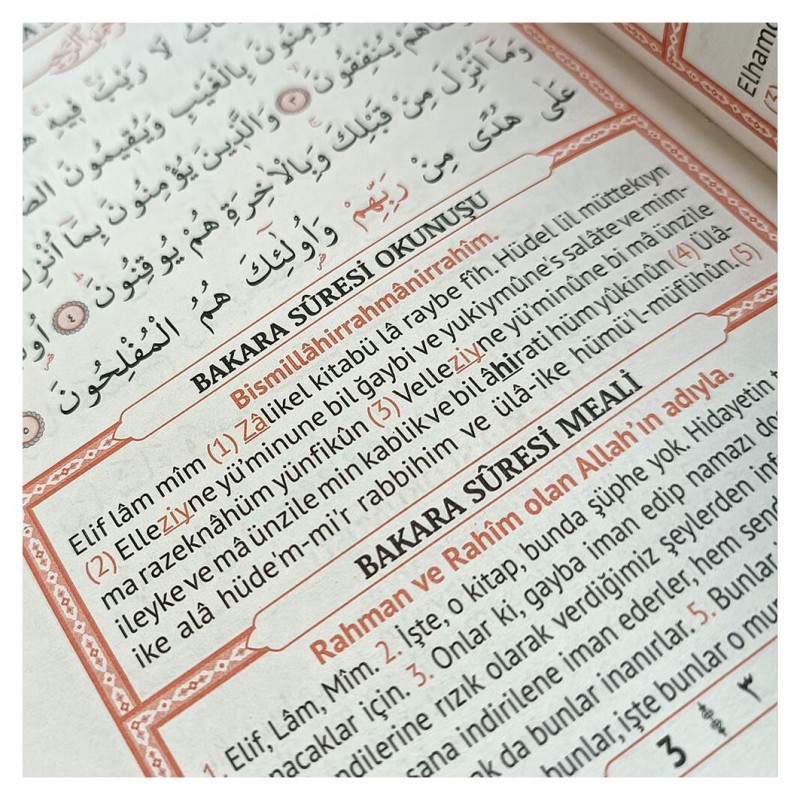 لَا رَيْبَ فِيهِ
يُؤْمِنُونَ بِالْغَيْبِ وَيُقِيمُونَ
يُنْفِقُونَ ٣ وَالَّذِينَ يُؤْمِنُونَ بِمَا أُنْزِلَ
وَمَا أُنْزِلَ مِنْ قَبْلِكَ وَبِالْاٰخِرَةِ هُمْ يُوقِنُونَ ٤
عَلٰى هُدًى مِنْ رَبِّهِمْ وَأُولٰئِكَ هُمُ الْمُفْلِحُونَ
BAKARA SÛRESİ OKUNUŞU
Bismillâhirrahmânirrahîm.
Elif lâm mîm (1) Zâlikel kitabü lâ raybe fîh. Hüdel lil müttekıyn
(2) Elleziyne yü'minune bil ğaybi ve yukiymûne's salâte ve mim-
ma razeknâhüm yünfikûn (3) Velleziyne yü'minûne bi mâ ünzile
ileyke ve mâ ünzile min kablik ve bil âhirati hüm yûkinûn (4) Ülâ-
ike alâ hüde'm-mi'r rabbihim ve ülâ-ike hümü'l-müflihûn. (5)
BAKARA SÛRESİ MEALİ
Rahman ve Rahîm olan Allah'ın adıyla.
1. Elif, Lâm, Mîm. 2. İşte, o kitap, bunda şüphe yok. Hidayetin
için. 3. Onlar ki, gayba iman edip namazı
rızık olarak verdiğimiz şeylerden
sana indirilene iman ederler, hem
da bunlar inanırlar. 5. Bunlar
bunlar, işte bunlar o
3 ٣
Elhamd